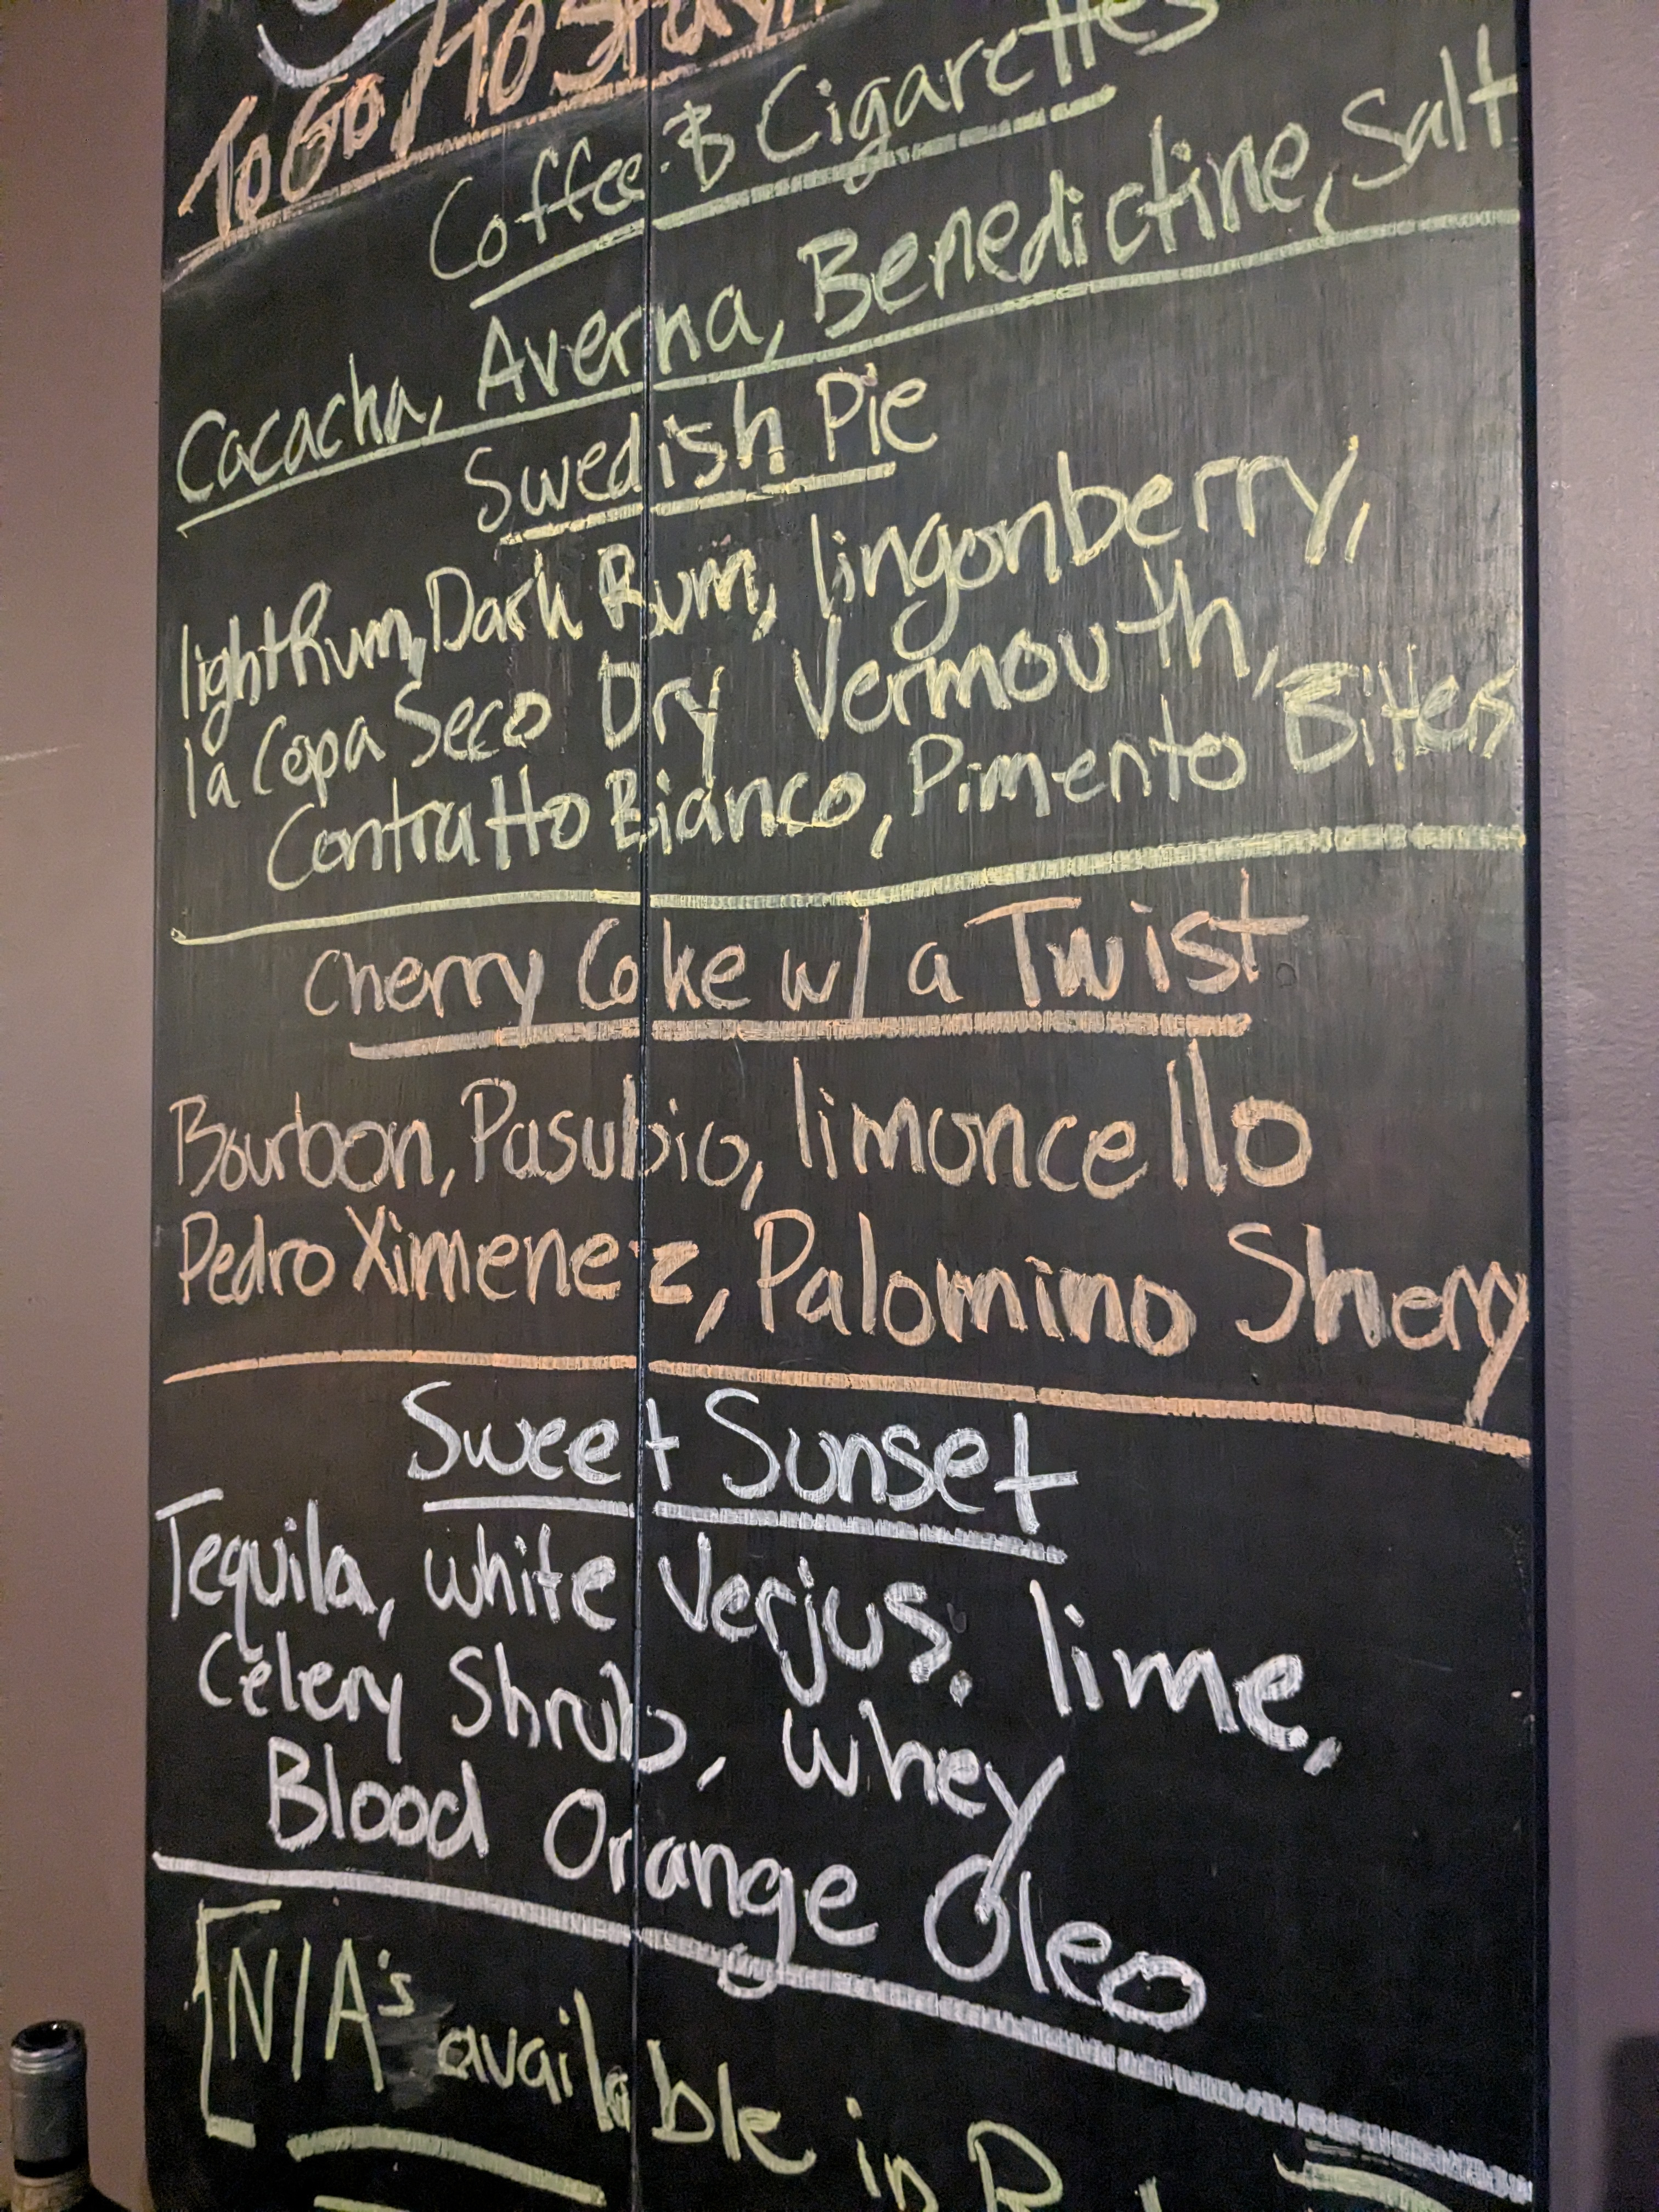 To Go / To Stay
Coffee & Cigarettes
Cacacha, Averna, Benedictine, Salt
Swedish Pie
light Rum, Dark Rum, lingonberry,
la Copa Seco Dry Vermouth,
Contratto Bianco, Pimento Bitters
Cherry Coke w/ a Twist
Bourbon, Pasubio, limoncello
Pedro Ximenez, Palomino Sherry
Sweet Sunset
Tequila, white Verjus, lime,
Celery Shrub, whey
Blood Orange Oleo
[N/A's available in